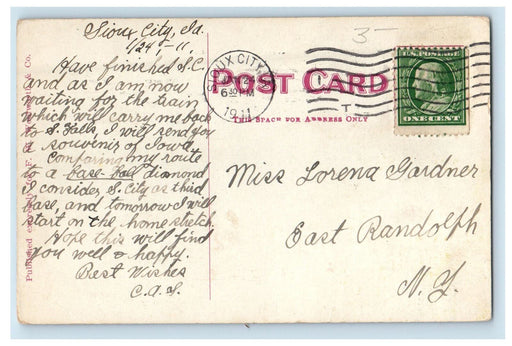 Sioux City, Ia.
1/24-11.
Have finished S.C.
and as I am now
waiting for the train
which will carry me back
to S. Falls, I will send you
a souvenir of Iowa.
Comparing my route
to a base-ball diamond
I consider S. City as third
base, and tomorrow I will
start on the home stretch.
Hope this will find
you well & happy.
Best Wishes
3-
SIOUX CITY
630 PM
1911
POST CARD
THIS SPACE FOR ADDRESS ONLY
ONE CENT
Miss Lorena Gardner
East Randolph
N.Y.